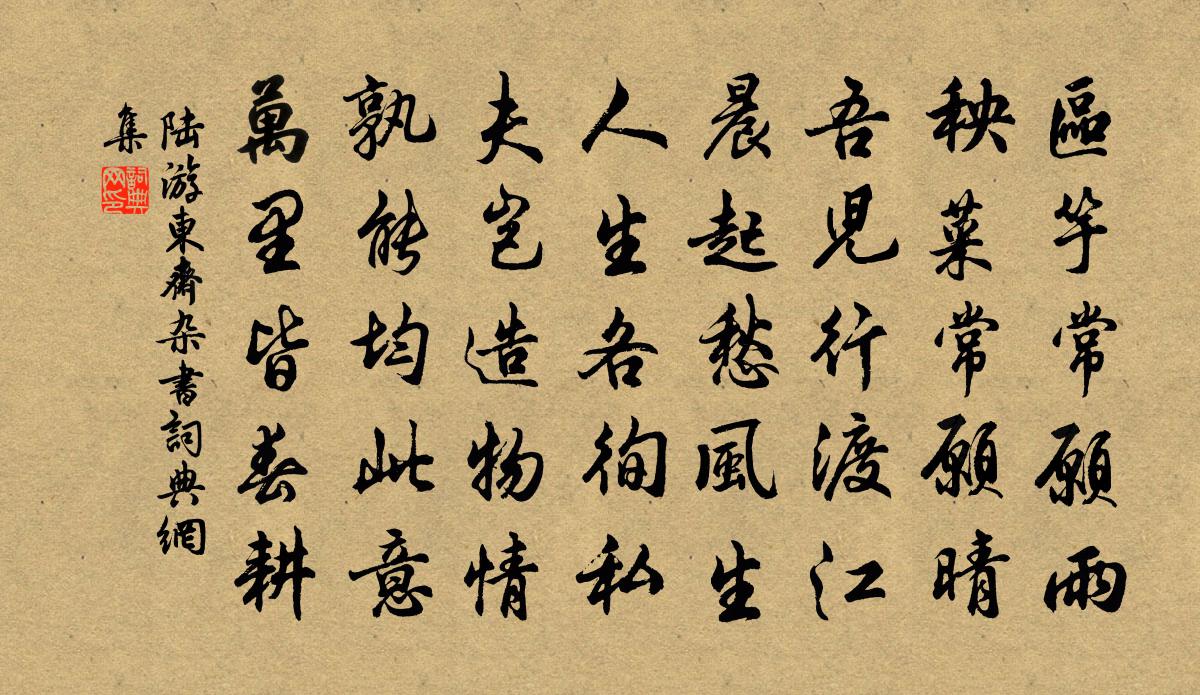 區芋常願雨
秧菜常願晴
吾兒行渡江
晨起愁風生
人生各徇私
夫豈造物情
孰能均此意
萬里皆春耕
陸游東齋杂書詞典網
集
詞典
网印